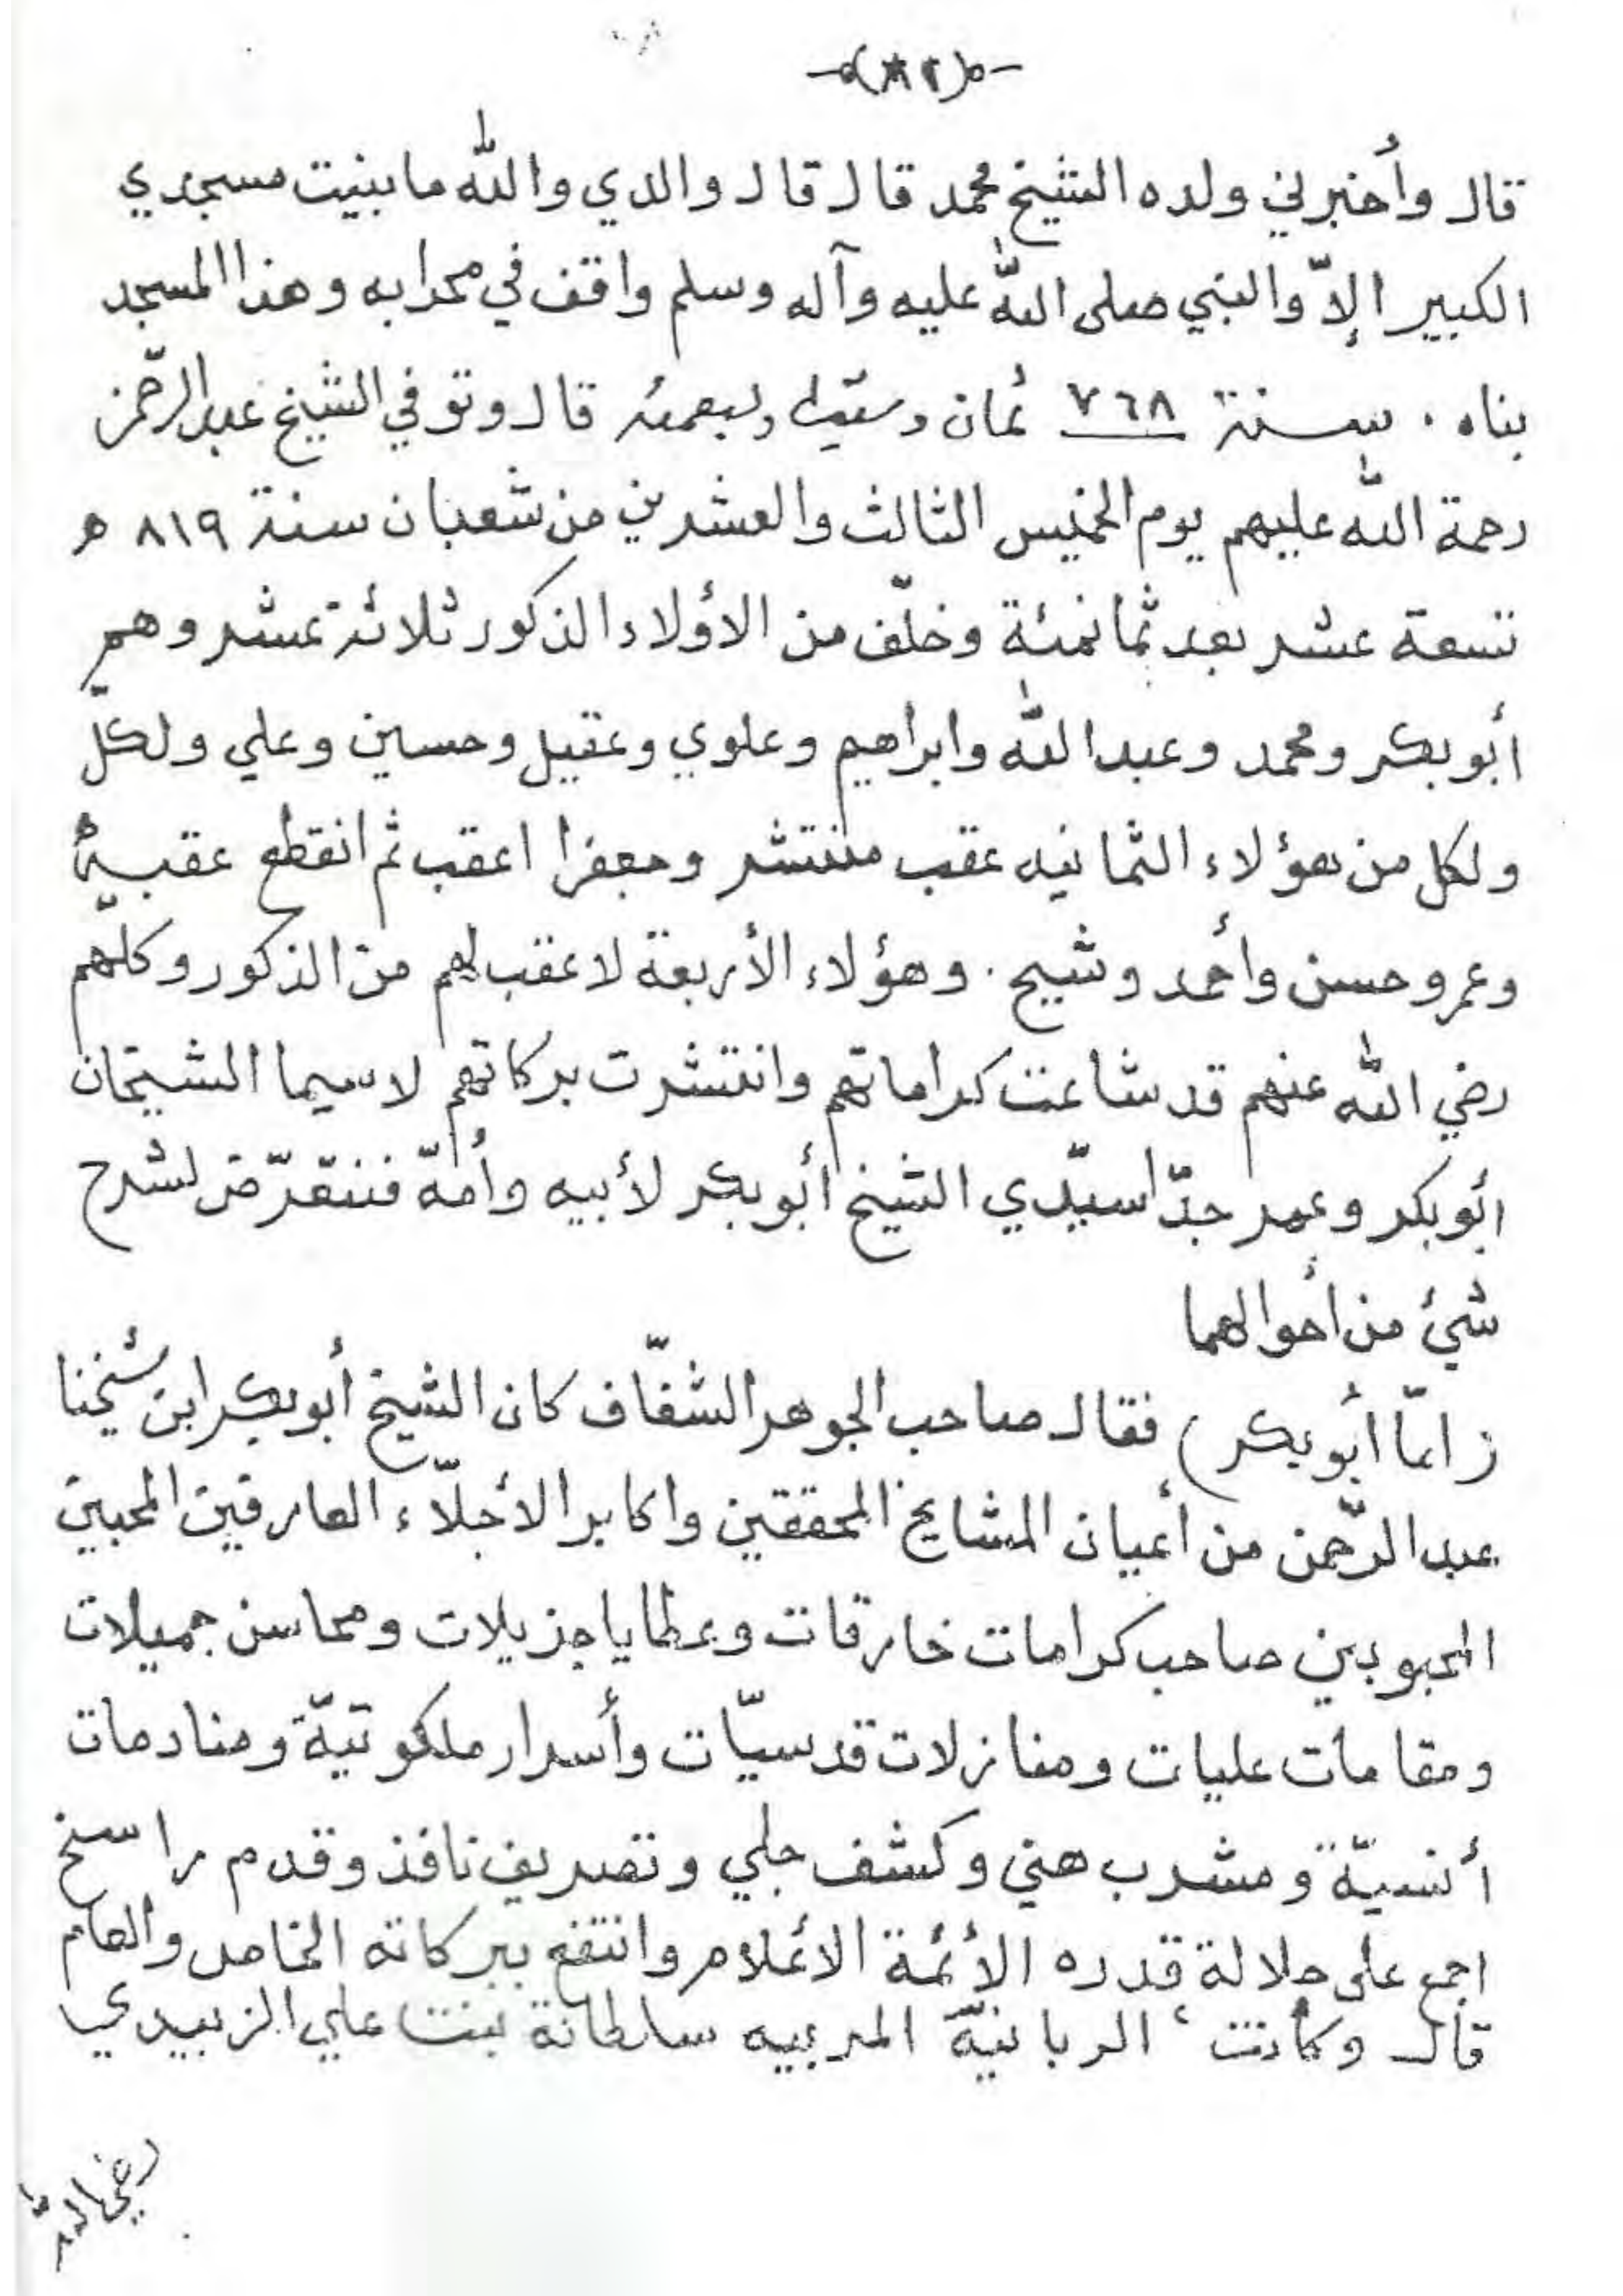 قال وأخبرني ولده الشيخ محمد قال قال والدي والله ما بنيت مسجدي
الكبير إلاّ والنبي صلى الله عليه وآله وسلم واقف في محرابه وهذا المسجد
بناه . سنة ٧٦٨ ثمان وستين وسبعمئه قال وتوفي الشيخ عبدالرحمن
رحمة الله عليهم يوم الخميس الثالث والعشرين من شعبان سنة ٨١٩ هـ
تسعة عشر بعد ثمانمئة وخلّف من الأولاد الذكور ثلاثة عشر وهم
أبوبكر ومحمد وعبدالله وابراهيم وعلوي وعقيل وحسين وعلي ولكلّ
ولكل من هؤلاء الثمانيه عقب منتشر وجعفرا اعقب ثم انقطع عقبه
وعمر وحسن وأحمد وشيخ . وهؤلاء الأربعة لا عقب لهم من الذكور وكلّهم
رضي الله عنهم قد شاعت كراماتهم وانتشرت بركاتهم لاسيما الشيخان
أبوبكر وعمر جدّا سيّدي الشيخ أبوبكر لأبيه وأمّه فنتعّرض لشرح
شيئ من أحوالهما
( امّا أبوبكر ) فقال صاحب الجوهر الشفّاف كان الشيخ أبوبكر ابن شيخنا
عبدالرّحمن من أعيان المشايخ المحققين واكابر الأجلّاء العارفين المحبين
المحبوبين صاحب كرامات خارقات وعطايا جزيلات ومحاسن جميلات
ومقامات عليات ومنازلات قدسيّات وأسرار ملكوتيّة ومنادمات
أنسيّة ومشرب هني وكشف جلي وتصريف نافذ وقدم راسخ
اجمع على جلالة قدره الأئمة الأعلام وانتفع ببركاته الخاص والعام
قال وكانت الربانيّة المربيه سلطانة بنت علي الزبيدي
رضي الله